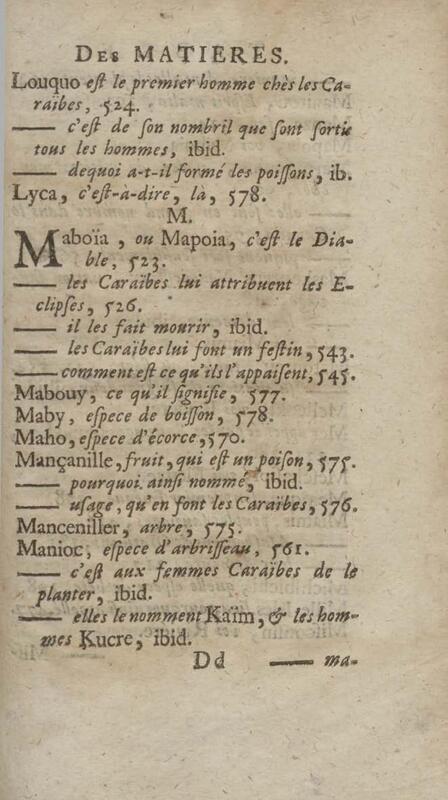 DES MATIERES.
Louquo eſt le premier homme chès les Ca-
raibes, 524.
—— c'eſt de ſon nombril que ſont ſortis
tous les hommes, ibid.
—— dequoi a-t-il formé les poiſſons, ib.
Lyca, c'eſt-à-dire, là, 578.
M.
Maboïa, ou Mapoia, c'eſt le Dia-
ble, 523.
—— les Caraïbes lui attribuent les E-
clipſes, 526.
—— il les fait mourir, ibid.
—— les Caraïbes lui font un feſtin, 543.
—— comment eſt ce qu'ils l'appaiſent, 545.
Mabouy, ce qu'il ſignifie, 577.
Maby, eſpece de boiſſon, 578.
Maho, eſpece d'écorce, 570.
Mançanille, fruit, qui eſt un poiſon, 575.
—— pourquoi ainſi nommé, ibid.
—— uſage, qu'en font les Caraibes, 576.
Manceniller, arbre, 575.
Manioc, eſpece d'arbriſſeau, 561.
—— c'eſt aux femmes Caraïbes de le
planter, ibid.
—— elles le nomment Kaïm, & les hom-
mes Kucre, ibid.
Dd —— ma-